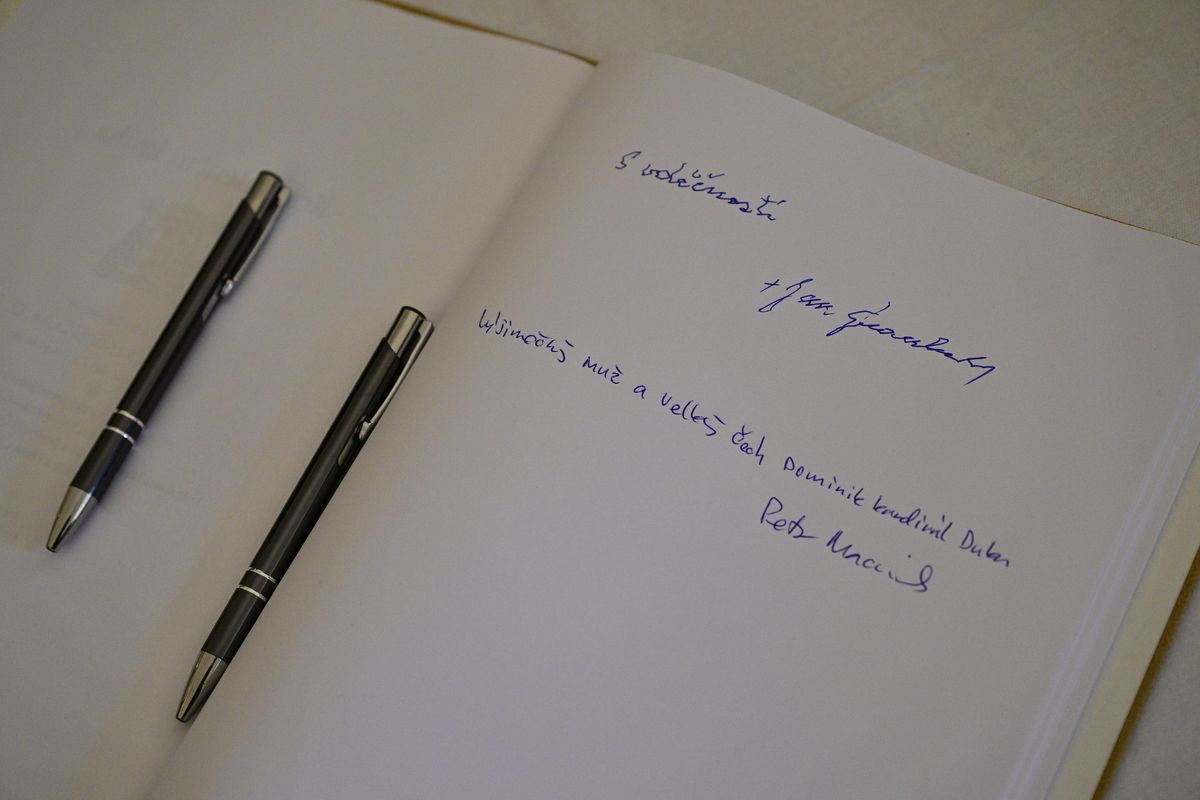 S vděčností
+ Jan Graubner
Výjimečný muž a velký Čech Dominik kardinál Duka
Petr